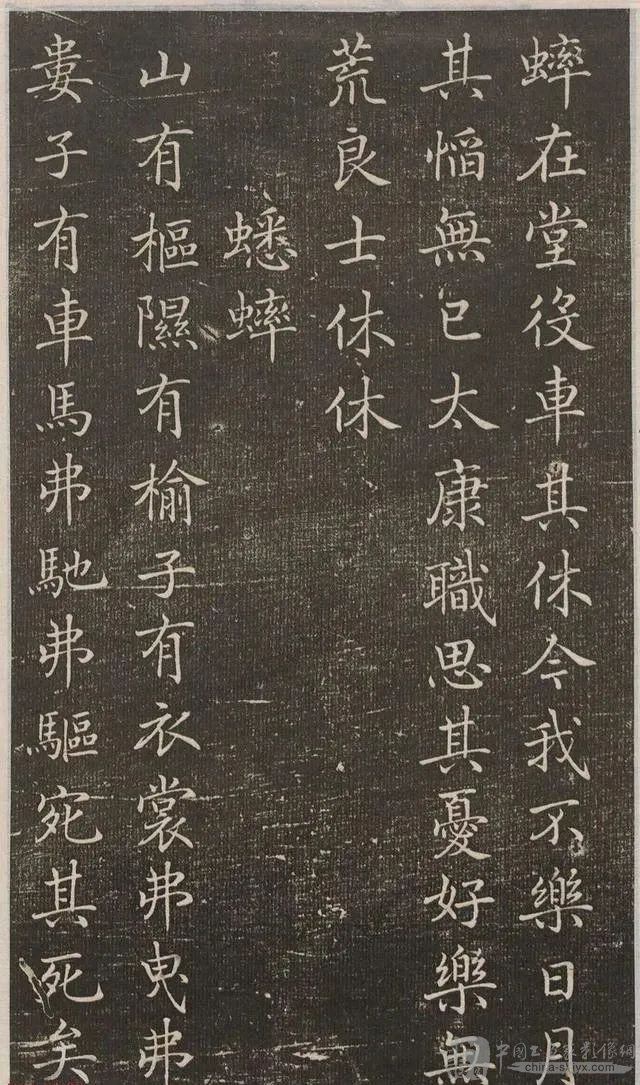 蟀在堂役車其休今我不樂日月
其慆無已太康職思其憂好樂無
荒良士休休
蟋蟀
山有樞隰有榆子有衣裳弗曳弗
婁子有車馬弗馳弗驅宛其死矣
china-shjyx.com